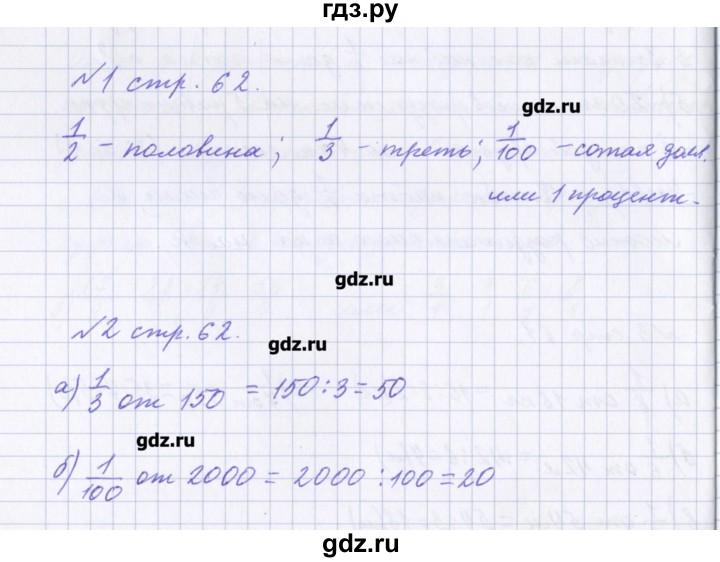 гдз.ру
№1 стр. 62.
gdz.ru
1/2 - половина; 1/3 - треть; 1/100 - сотая дол.
или 1 процент.
gdz.ru
№2 стр. 62.
gdz.ru
а) 1/3 от 150 = 150 : 3 = 50
gdz.ru
б) 1/100 от 2000 = 2000 : 100 = 20
gdz.ru